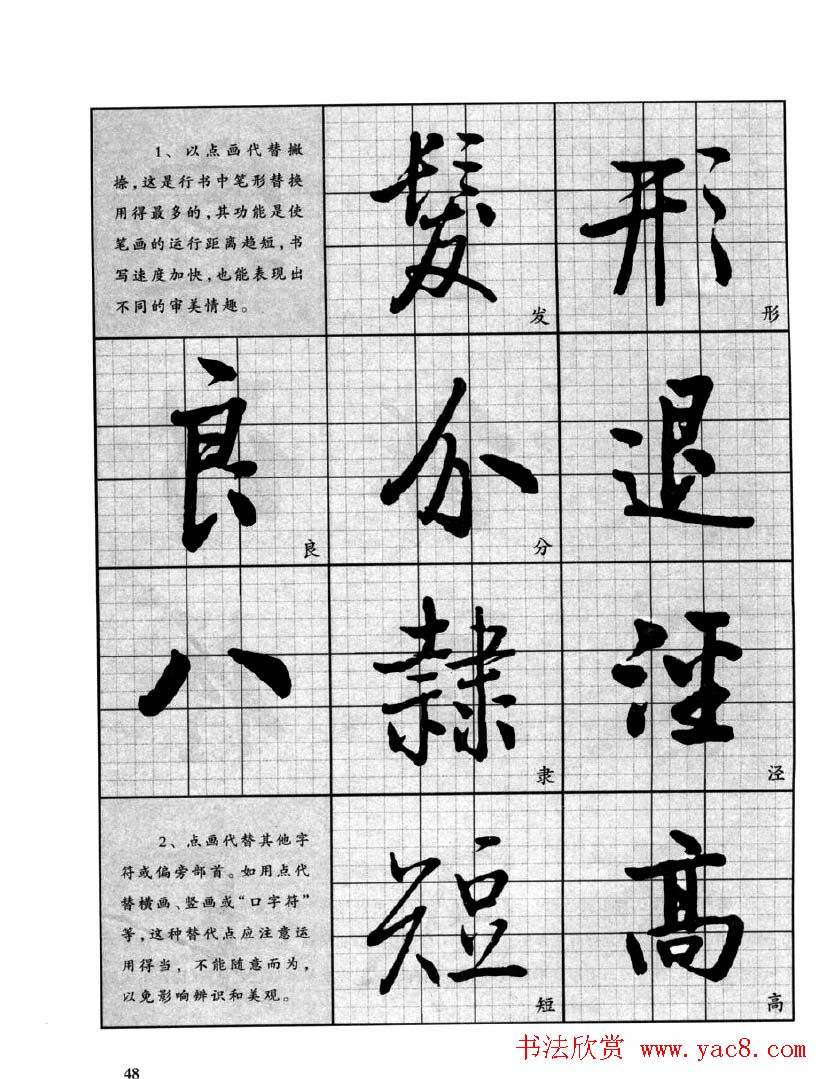 1、以点画代替撇
捺，这是行书中笔形替换
用得最多的，其功能是使
笔画的运行距离趋短，书
写速度加快，也能表现出
不同的审美情趣。
髮 形
发 形
良 分 退
良 分
八 隸 淫
隶 泾
2、点画代替其他字
符或偏旁部首。如用点代
替横画、竖画或“口字符”
等，这种替代点应注意运
用得当，不能随意而为，
以免影响辨识和美观。
短 高
短 高
48
书法欣赏 www.yac8.com